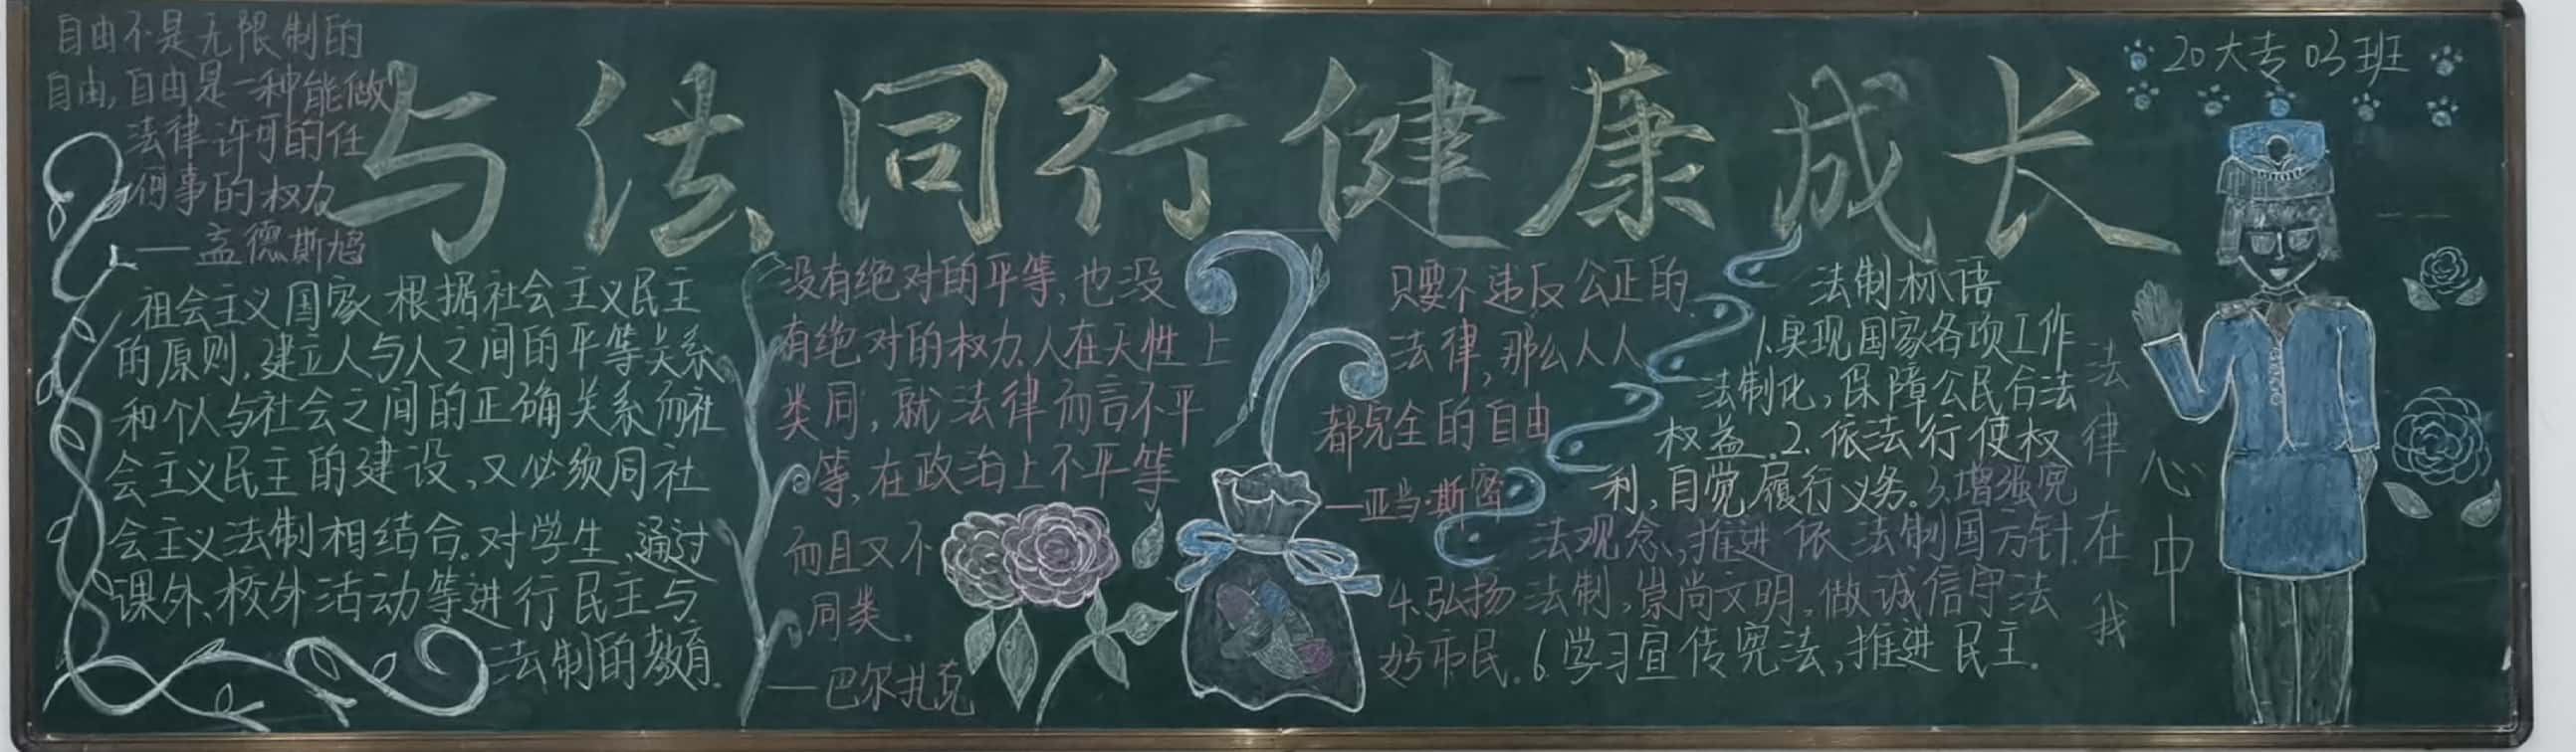 与法同行健康成长
20大专03班
自由不是无限制的
自由,自由是一种能做
法律许可的任
何事的权力
——孟德斯鸠
祖会主义国家根据社会主义民主
的原则,建立人与人之间的平等关系
和个人与社会之间的正确关系而社
会主义民主的建设,又必须同社
会主义法制相结合。对学生、通过
课外、校外活动等进行民主与
法制的教育.
没有绝对的平等,也没
有绝对的权力,人在天性上
类同,就法律而言不平
等,在政治上不平等
而且又不
同类。
——巴尔扎克
只要不违反公正的
法律,那么人人
都完全的自由
—亚当·斯密
法制标语
1.实现国家各项工作
法制化,保障公民合法
权益.2.依法行使权
利,自觉履行义务。3.增强宪
法观念,推进依法制国方针.
4.弘扬法制,崇尚文明,做诚信守法
好市民.6.学习宣传宪法,推进民主.
法律在我
心中